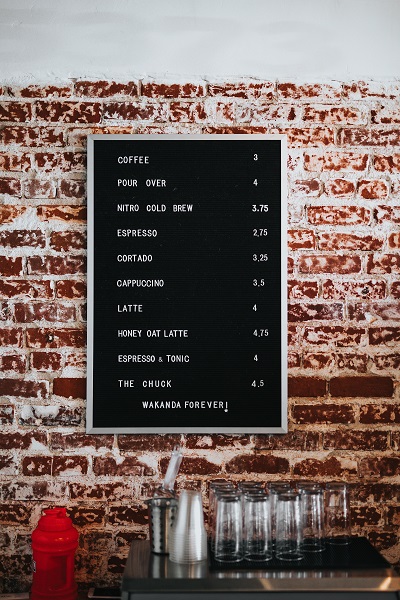 COFFEE 3
POUR OVER 4
NITRO COLD BREW 3.75
ESPRESSO 2,75
CORTADO 3,25
CAPPUCCINO 3,5
LATTE 4
HONEY OAT LATTE 4,75
ESPRESSO & TONIC 4
THE CHUCK 4.5
WAKANDA FOREVER!